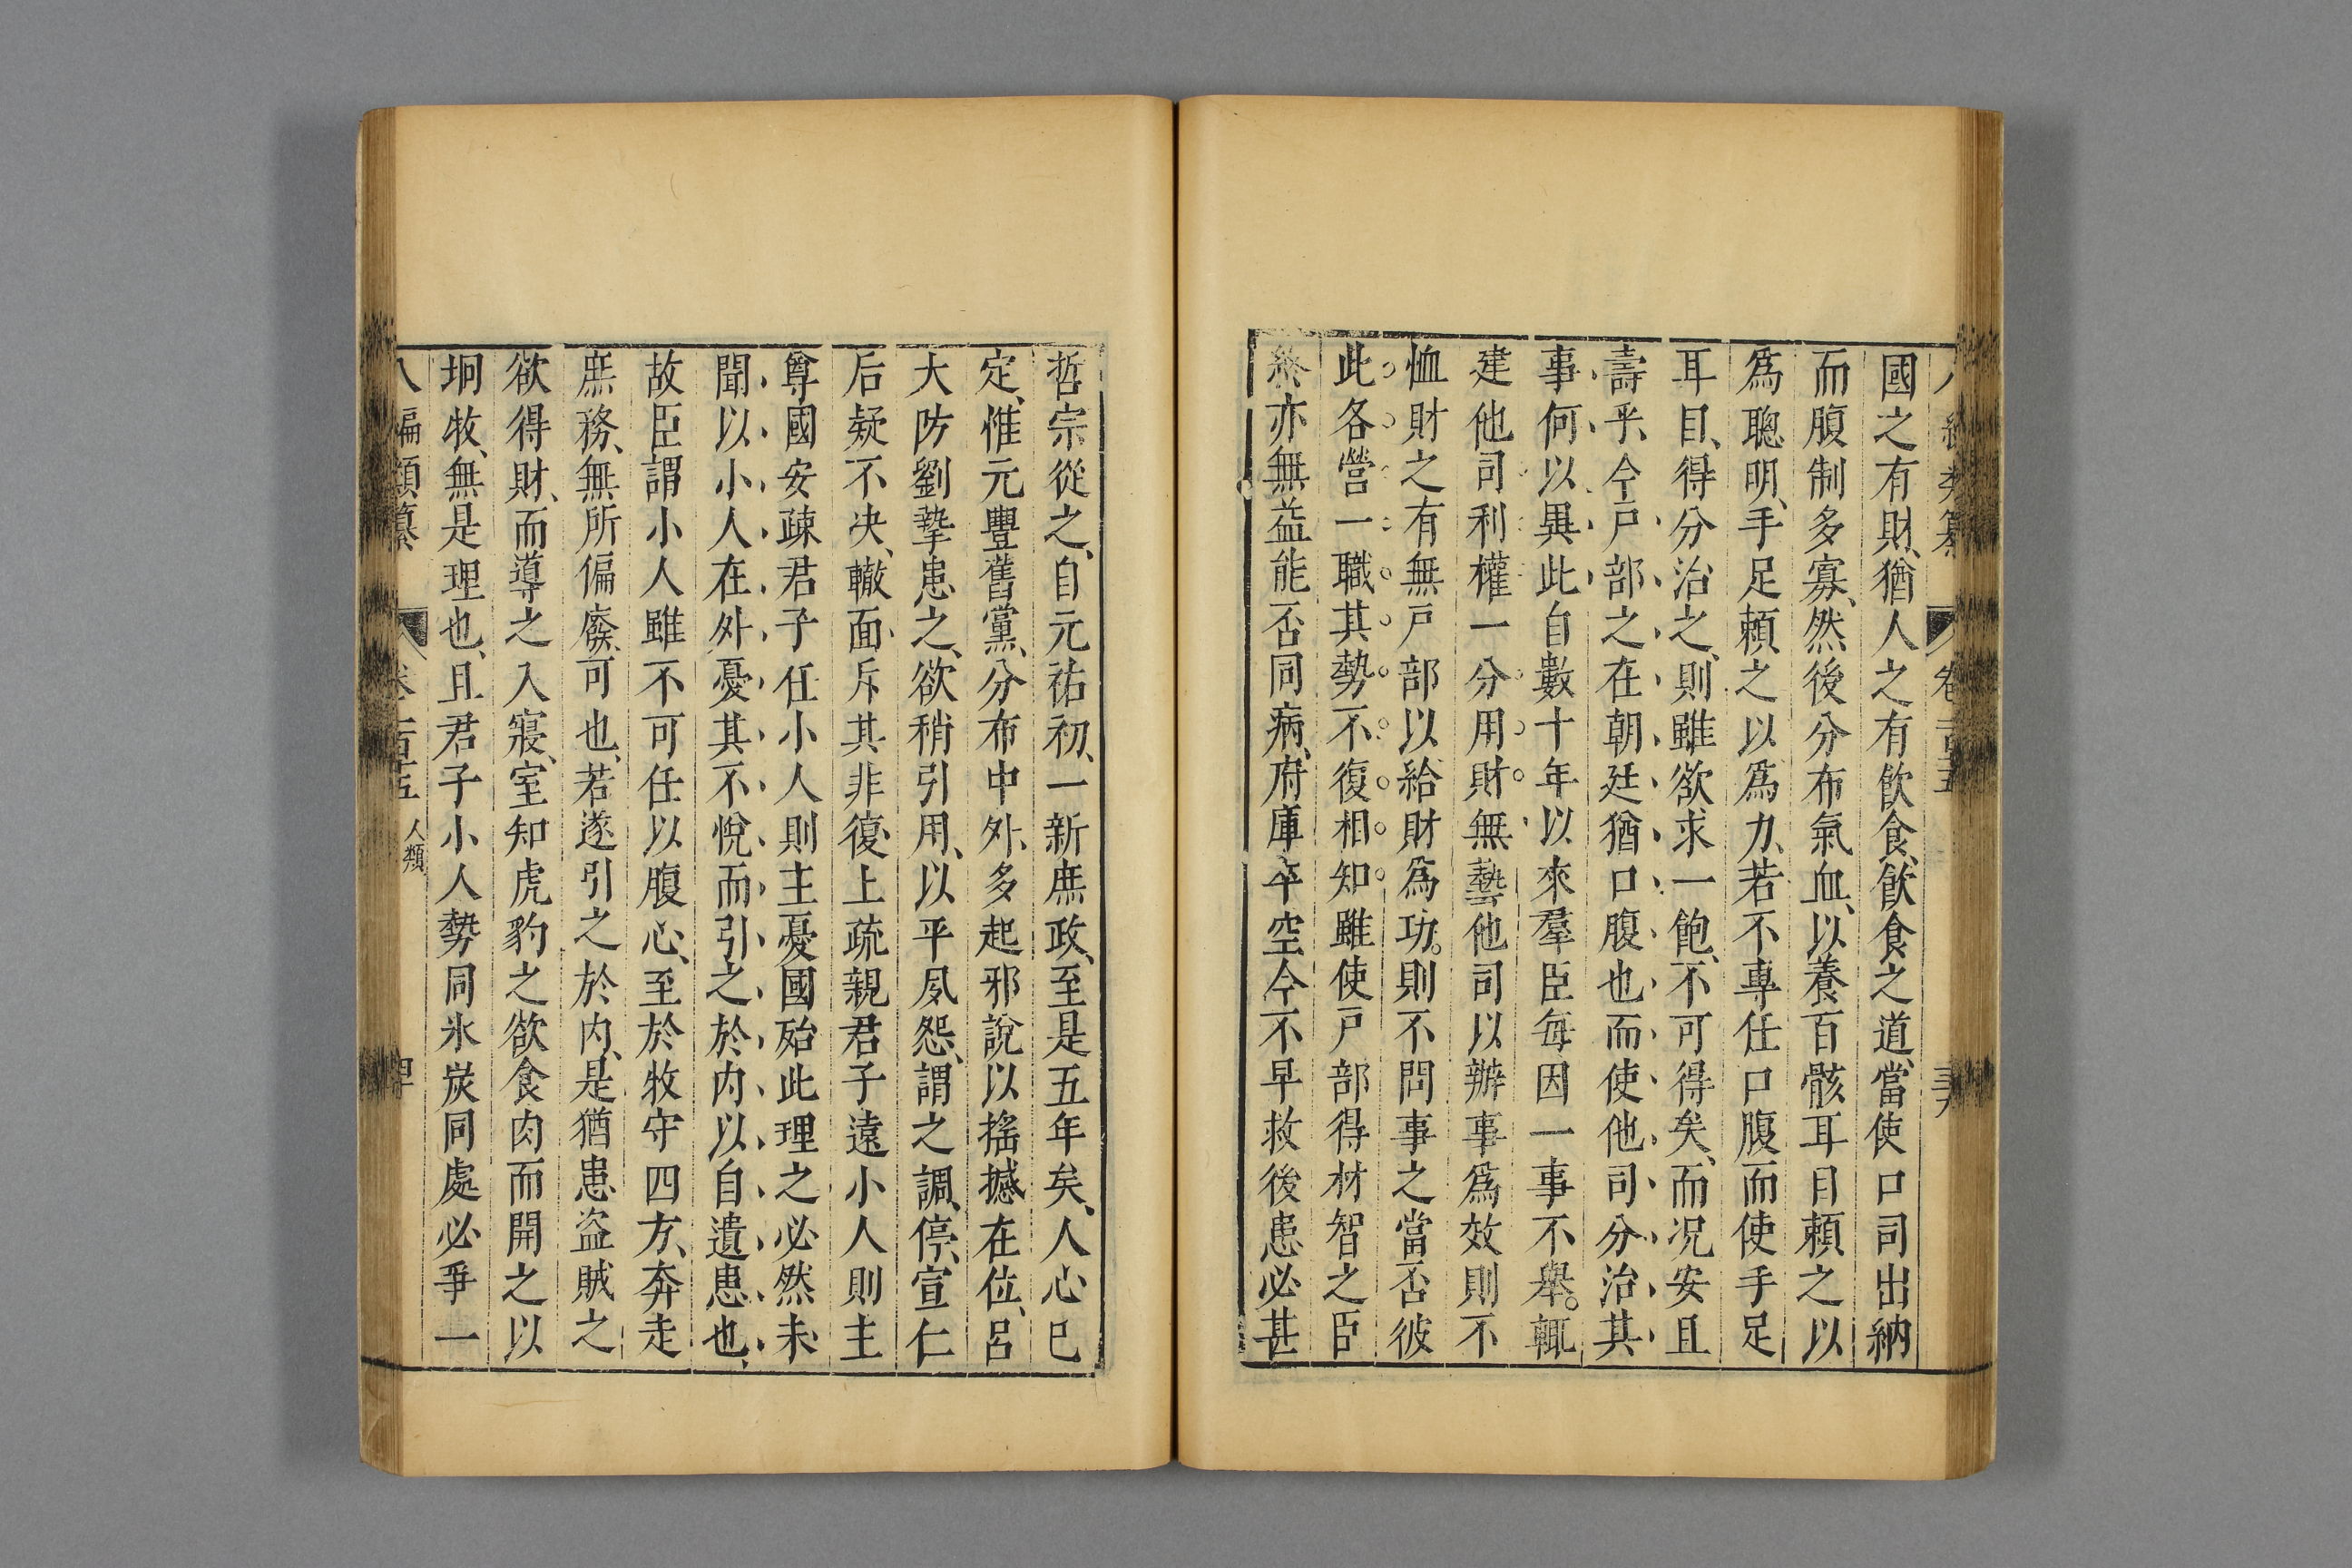 國之有財、猶人之有飲食、飲食之道、當使口司出納
而腹制多寡、然後分布氣血、以養百骸耳目賴之以
爲聰明、手足賴之以爲力、若不專任口腹而使手足
耳目、得分治之、則雖欲求一飽、不可得矣、而况安且
壽乎、今戸部之在朝廷猶口腹也而使他司分治其
事何以異此自數十年以來羣臣每因一事不舉。輒
建他司利權一分用財無藝他司以辦事爲效則不
恤財之有無戸部以給財爲功。則不問事之當否彼
此各營一職其勢不復相知雖使戸部得材智之臣
終亦無益能否同病、府庫卒空今不早救後患必甚
哲宗從之、自元祐初、一新庶政、至是五年矣、人心已
定、惟元豐舊黨、分布中外、多起邪說以搖撼在位、呂
大防劉摯患之、欲稍引用、以平夙怨、謂之調停、宣仁
后疑不决、轍面斥其非復上疏親君子遠小人則主
尊國安疎君子任小人則主憂國殆此理之必然未
聞以小人在外憂其不悅而引之於内以自遺患也、
故臣謂小人雖不可任以腹心、至於牧守四方、奔走
庶務、無所偏廢可也、若遂引之於内、是猶患盜賊之
欲得財、而導之入寢、室知虎豹之欲食肉而開之以
坰牧、無是理也、且君子小人勢同氷炭同處必爭一
八編類纂 卷一百五 人類